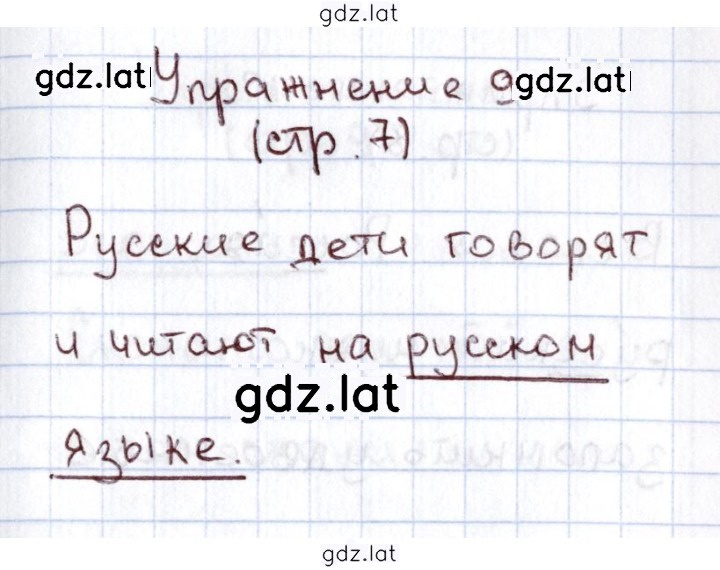 gdz.lat
gdz.lat Упражнение 9 gdz.lat
(стр. 7)
Русские дети говорят
и читают на русском
gdz.lat
языке.
gdz.lat